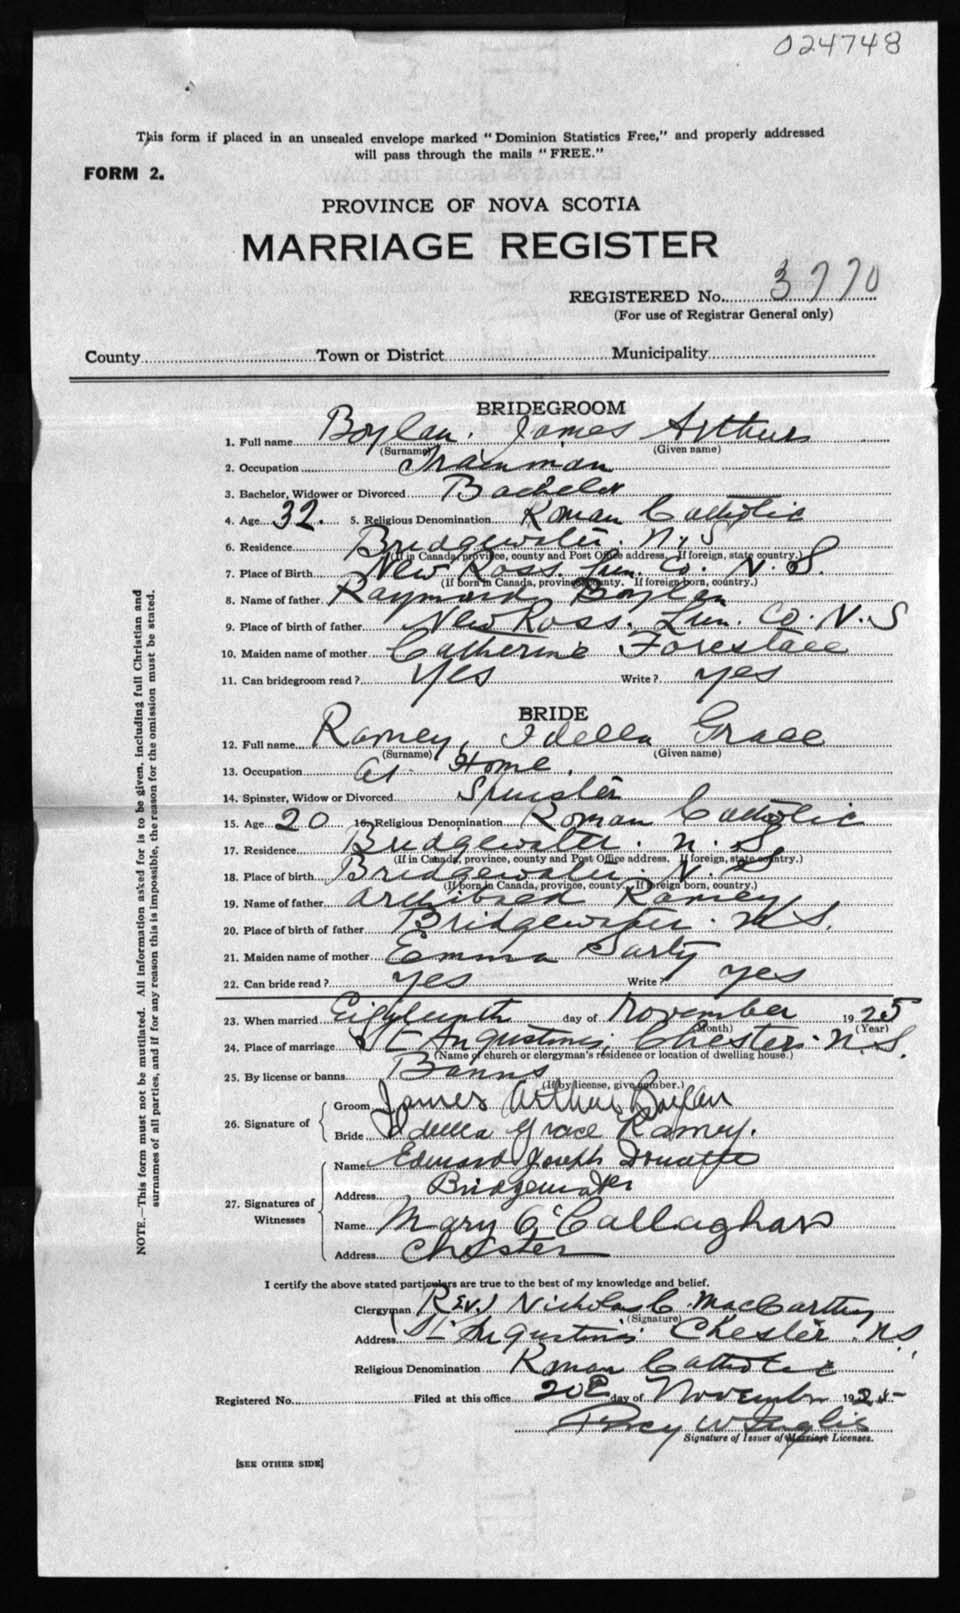 024748
This form if placed in an unsealed envelope marked "Dominion Statistics Free," and properly addressed
will pass through the mails "FREE."
FORM 2.
PROVINCE OF NOVA SCOTIA
MARRIAGE REGISTER
REGISTERED No. 3770
(For use of Registrar General only)
County Town or District Municipality
BRIDEGROOM
1. Full name Boylan, James Arthur
(Surname) (Given name)
2. Occupation Trainman
3. Bachelor, Widower or Divorced Bachelor
4. Age 32. 5. Religious Denomination Roman Catholic
6. Residence Bridgewater. N.S
(If in Canada, province, county and Post Office address. If foreign, state country.)
7. Place of Birth New Ross. Lun. Co. N.S.
(If born in Canada, province, county. If foreign born, country.)
8. Name of father Raymond Boylan
9. Place of birth of father New Ross. Lun. Co. N.S
10. Maiden name of mother Catherine Forestall
11. Can bridegroom read? Yes Write? yes
BRIDE
12. Full name Ramey, Idella Grace
(Surname) (Given name)
13. Occupation At Home.
14. Spinster, Widow or Divorced Spinster
15. Age 20 16. Religious Denomination Roman Catholic
17. Residence Bridgewater. N.S.
(If in Canada, province, county and Post Office address. If foreign, state country.)
18. Place of birth Bridgewater. N.S
(If born in Canada, province, county. If foreign born, country.)
19. Name of father Archibald Ramey
20. Place of birth of father Bridgewater. N.S.
21. Maiden name of mother Emma Sarty
22. Can bride read? yes Write? yes
23. When married Eighteenth day of November 1925
(Month) (Year)
24. Place of marriage St Augustine's, Chester. N.S.
(Name of church or clergyman's residence or location of dwelling house.)
25. By license or banns Banns
(If by license, give number.)
26. Signature of Groom James Arthur Boylan
Bride Idella Grace Ramey.
27. Signatures of Witnesses Name Edward Joseph
Address Bridgewater
Name Mary O'Callaghan
Address Chester
I certify the above stated particulars are true to the best of my knowledge and belief.
Clergyman (Rev.) Nicholas C. MacCarthy
(Signature)
Address St Augustine's Chester. N.S.
Religious Denomination Roman Catholic
Registered No. Filed at this office 20 day of November 1925
Percy W Inglis
Signature of Issuer of Marriage Licenses.
[SEE OTHER SIDE]
NOTE.—This form must not be mutilated. All information asked for is to be given, including full Christian and
surnames of all parties, and if for any reason this is impossible, the reason for the omission must be stated.